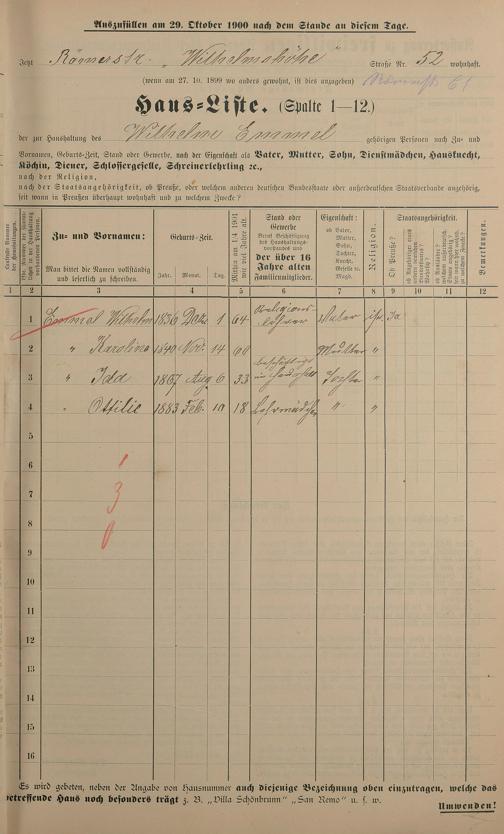 Auszufüllen am 29. Oktober 1900 nach dem Stande an diesem Tage.
Jetzt Römerstr. „Wilhelmshöhe" Straße Nr. 52 wohnhaft.
(wenn am 27. 10. 1899 wo anders gewohnt, ist dies anzugeben) Römerstr 61
Haus-Liste. (Spalte 1—12.)
der zur Haushaltung des Wilhelm Emmel gehörigen Personen nach Zu- und
Vornamen, Geburts-Zeit, Stand oder Gewerbe, nach der Eigenschaft als Vater, Mutter, Sohn, Dienstmädchen, Hausknecht,
Köchin, Diener, Schlossergeselle, Schreinerlehrling ꝛc.,
nach der Religion,
nach der Staatsangehörigkeit, ob Preuße, oder welchem anderen deutschen Bundesstaate oder außerdeutschen Staatsverbande angehörig,
seit wann in Preußen überhaupt wohnhaft und zu welchem Zwecke?
Zu- und Vornamen:
Man bittet die Namen vollständig und leserlich zu schreiben.
Geburts-Zeit.
Jahr. Monat. Tag.
Mithin am 1/4 1901 wie viel Jahre alt.
Stand oder Gewerbe
Beruf Beschäftigung des Haushaltungsvorstandes und der über 16 Jahre alten Familienmitglieder.
Eigenschaft:
ob Vater, Mutter, Sohn, Tochter, Knecht, Geselle ꝛc. Magd.
Religion.
Staatsangehörigkeit.
Ob Preuße?
Bemerkungen.
1 2 3 4 5 6 7 8 9 10 11 12
1 Emmel Wilhelm 1836 Dez. 1 64 Religionslehrer Vater isr. Ja
2 " Karolina 1840 Nov. 14 60 Mutter "
3 " Idd 1867 Aug 6 33 beschäftigt im Haushalt Tochter "
4 " Ottilie 1883 Feb. 10 18 Lehrmädchen " "
5
6
1
7
3
8
0
9
10
11
12
13
14
15
16
Es wird gebeten, neben der Angabe von Hausnummer auch diejenige Bezeichnung oben einzutragen, welche das
betreffende Haus noch besonders trägt z. B. „Villa Schönbrunn" „San Remo" u. s. w.
Umwenden!